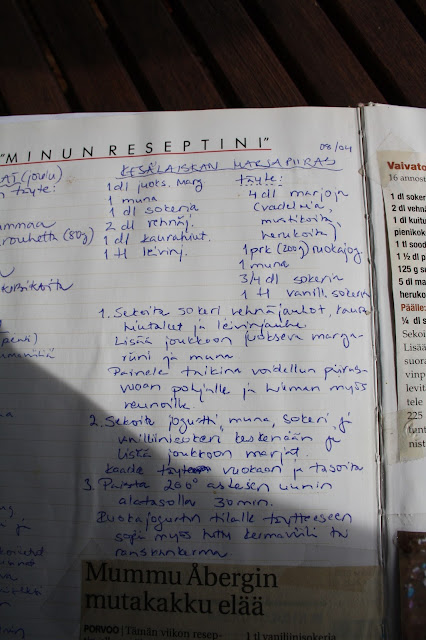 "MINUN RESEPTINI"
08/04
(joulu)
täyte:
rouhetta (80g)
KESÄLAISKAN MARJAPIIRAS
1 dl juoks. marg
1 muna
1 dl sokeria
2 dl vehnäj.
1 dl kaurahiut.
1 tl leivinj.
täyte:
4 dl marjoja
(vadelmia,
mustikoita,
herukoita)
1 prk (200g) ruokajog
1 muna
3/4 dl sokeria
1 tl vanill. sokeria
1. Sekoita sokeri, vehnäjauhot, kaura
hiutalet ja leivinjauhe.
Lisää joukkoon juokseva marga-
riini ja muna
Painele taikina voidellun piiras
vuoan pohjalle ja hieman myös
reunoille
2. Sekoita jogurtti, muna, sokeri ja
vanilliinisokeri keskenään ja
lisää joukkoon marjat.
Kaada täyte vuokaan ja tasoita
3. Paista 200° asteisen uunin
alatasolla 30 min.
Ruokajogurtin tilalle täytteeseen
sopii myös tuttu kermaviili tai
ranskankerma
Mummu Åbergin
mutakakku elää
PORVOO | Tämän viikon resep-
1 tl vaniljinsokeria
Vaivato
16 annost
1 dl soker
2 dl vehn
1 dl kuitu
pienikok
1 tl sood
1 ½ dl p
125 g s
5 dl ma
heruko
Päälle:
¼ dl s
Sekoi
Lisää
suora
vinp
levita
tele
225
nist